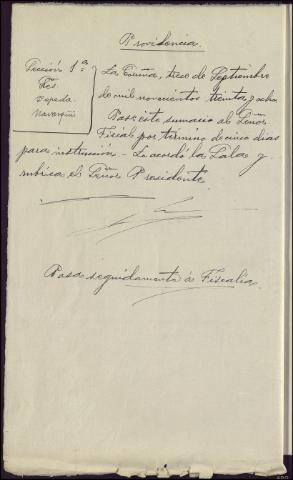 Providencia.
Sección 1ª
Sres
Cepeda
Navarro
La Coruña, trece de Septiembre
de mil novecientos treinta y ocho
Pase este sumario al Señor
Fiscal por término de cinco dias
para instrucción - Lo acordó la Sala y
rubrica el Señor Presidente.
Pasa seguidamente á Fiscalia.